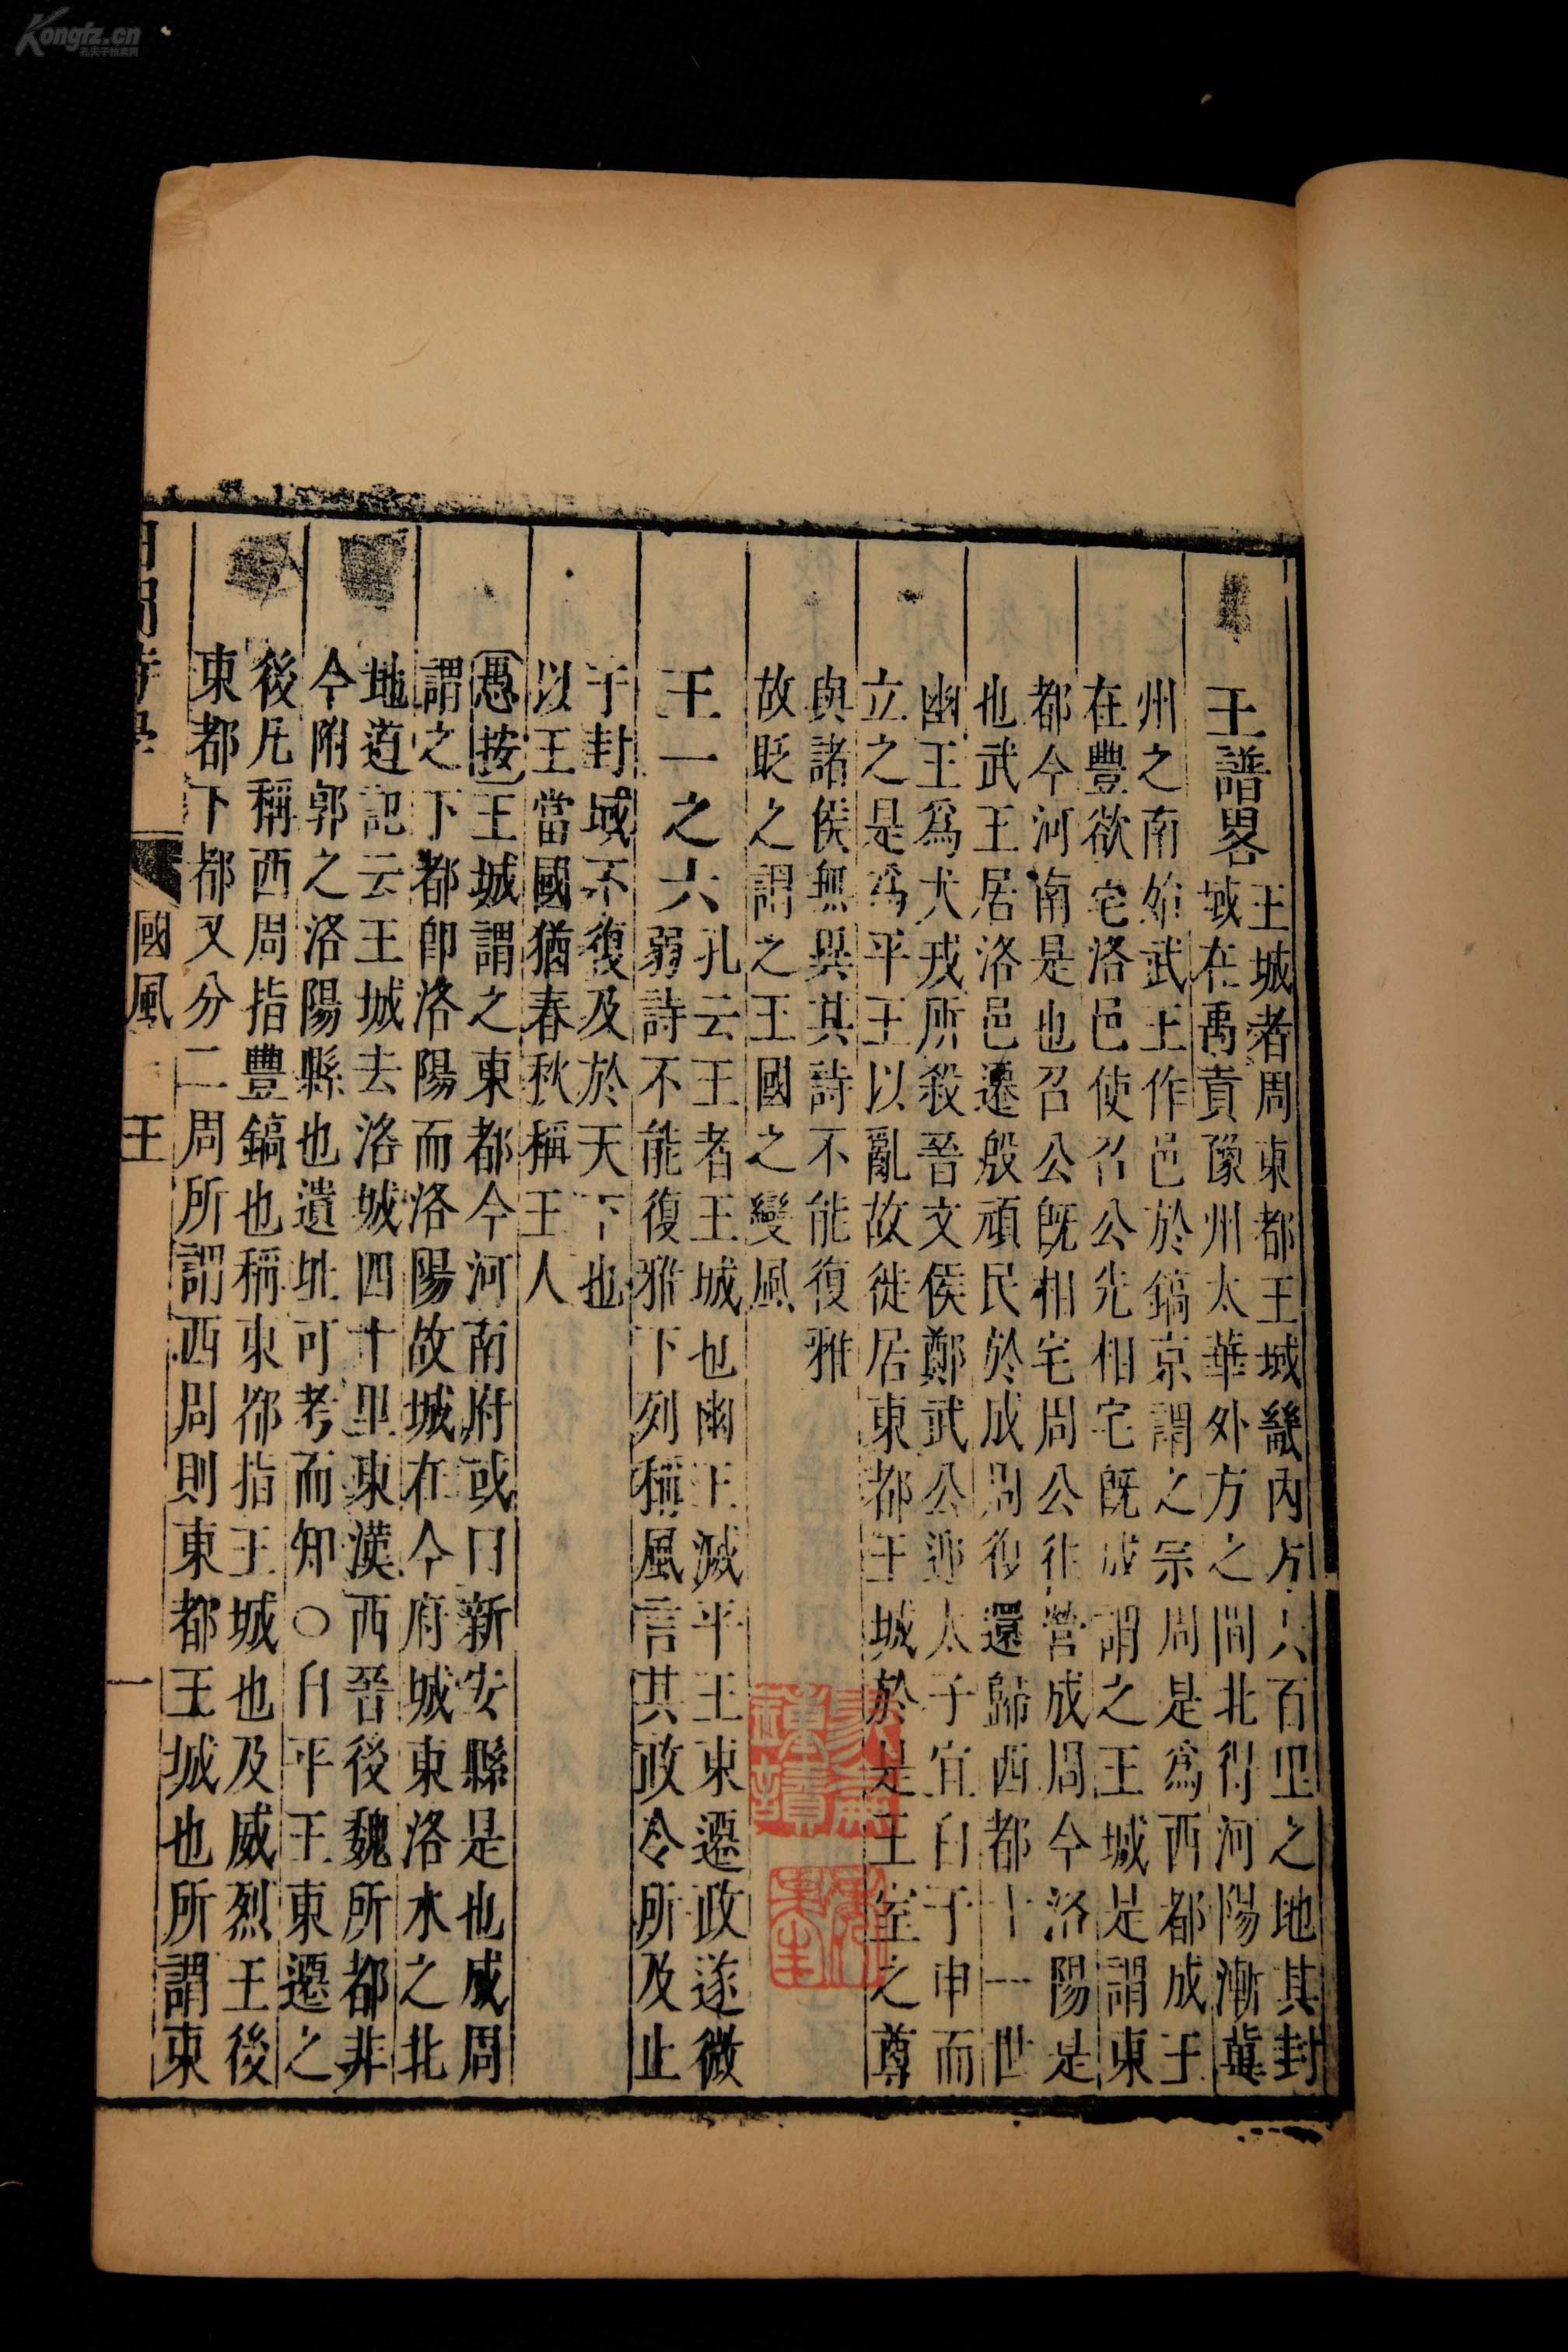 王譜畧
王城者周東都王城畿內方六百里之地其封
域在禹貢豫州太華外方之間北得河陽漸冀
州之南始武王作邑於鎬京謂之宗周是爲西都成王
在豐欲宅洛邑使召公先相宅旣成謂之王城是謂東
都今河南是也召公旣相宅周公往營成周今洛陽是
也武王居洛邑遷殷頑民於成周復還歸西都十一世
幽王爲犬戎所殺晉文侯鄭武公迎太子宜臼于申而
立之是爲平王以亂故徙居東都王城於是王室之尊
與諸侯無異其詩不能復雅
故貶之謂之王國之變風
王一之六
孔云王者王城也幽王滅平王東遷政遂微
弱詩不能復雅下列稱風言其政令所及止
于封域不復及於天下也
以王當國猶春秋稱王人
愚按王城謂之東都今河南府或曰新安縣是也成周
謂之下都卽洛陽而洛陽故城在今府城東洛水之北
地道記云王城去洛城四十里東漢西晉後魏所都非
今附郭之洛陽縣也遺址可考而知○自平王東遷之
後凡稱西周指豐鎬也稱東都指王城也及威烈王後
東都下都又分二周所謂西周則東都王城也所謂東
國風 王 一
Kongfz.cn